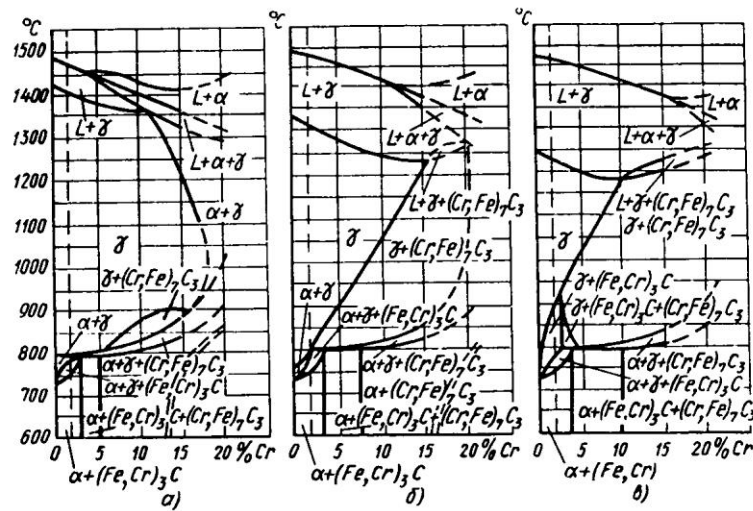 °C
1500
1450
1400
1350
1300
1200
1100
1000
900
800
700
600
L+γ
L+α
L+α+γ
α+γ
γ
γ+(Cr,Fe)₇C₃
α+γ
α+γ+(Cr,Fe)₇C₃
α+γ+(Fe,Cr)₃C
α+(Fe,Cr)₃C+(Cr,Fe)₇C₃
0 5 10 15 20 %Cr
α+(Fe,Cr)₃C
а)
°C
L+γ
L+α
L+α+γ
L+γ+(Cr,Fe)₇C₃
γ
γ+(Cr,Fe)₇C₃
α+γ
α+γ+(Fe,Cr)₃C
α+γ+(Cr,Fe)₇C₃
α+(Cr,Fe)₇C₃
α+(Fe,Cr)₃C+(Cr,Fe)₇C₃
0 5 10 15 20 %Cr
α+(Fe,Cr)₃C
б)
°C
L+γ
L+α
L+α+γ
L+γ+(Cr,Fe)₇C₃
γ+(Cr,Fe)₇C₃
γ
γ+(Fe,Cr)₃C
γ+(Fe,Cr)₃C+(Cr,Fe)₇C₃
α+γ+(Cr,Fe)₇C₃
α+γ+(Fe,Cr)₃C
α+(Fe,Cr)₃C+(Cr,Fe)₇C₃
0 5 10 15 20 %Cr
α+(Fe,Cr)
в)